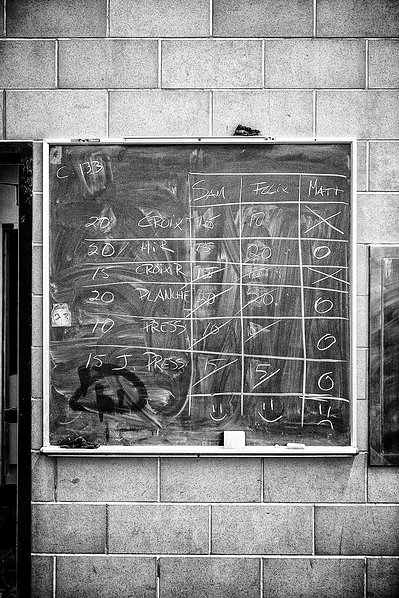 C 133
SAM FELIX MATT
20 CROIX 15 10 X
20 % MIR 15 20 0
15 CROIX R 15 15 X
20 PLANCHE 20 20 0
10 PRESS 10 0
15 J PRESS 15 15 0